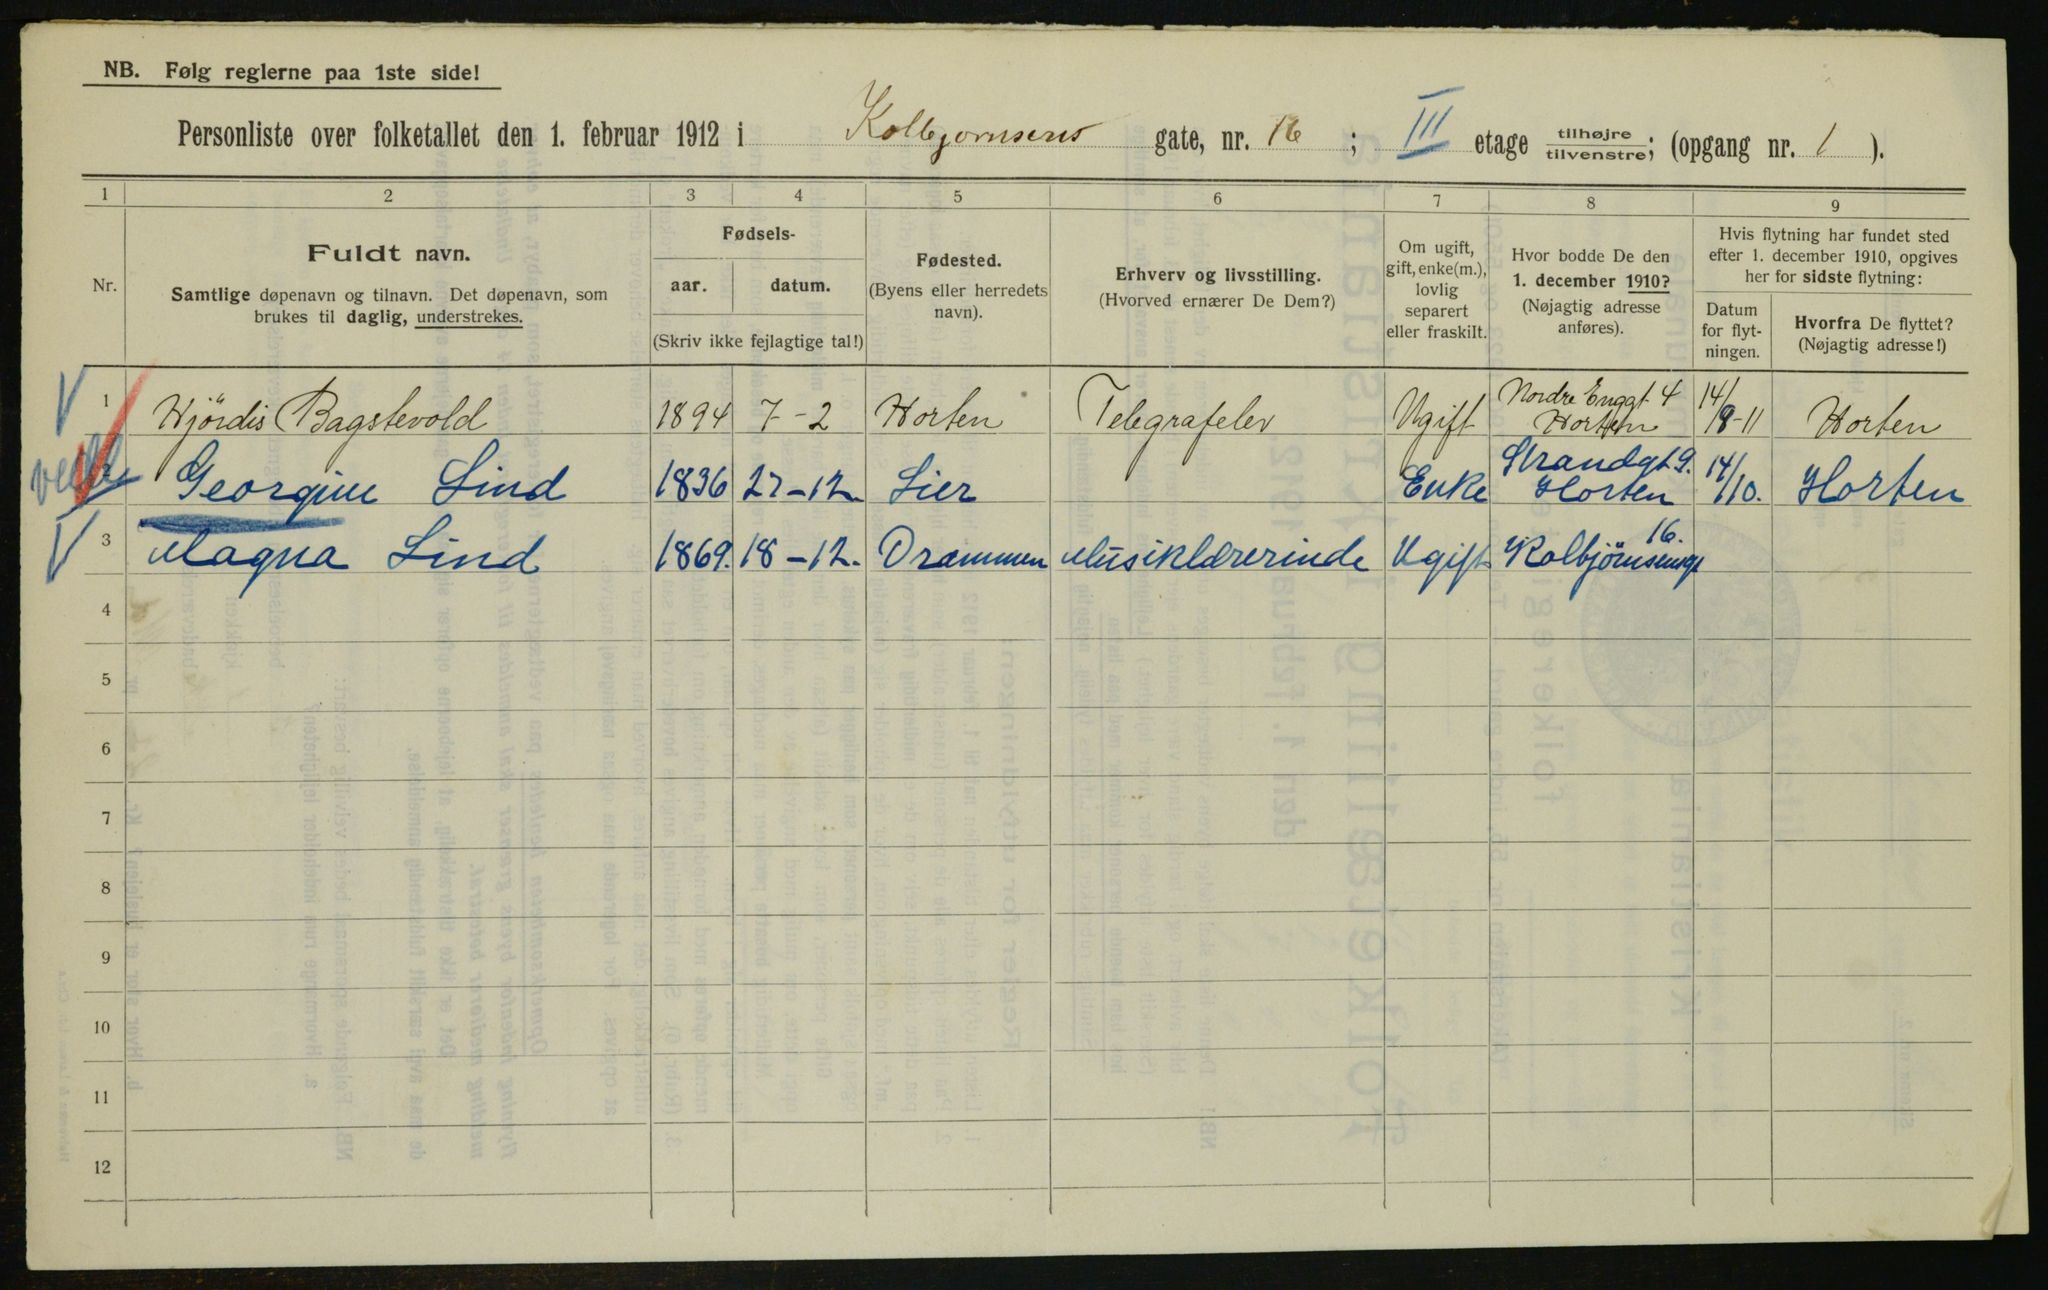 NB. Følg reglerne paa 1ste side!
Personliste over folketallet den 1. februar 1912 i Kolbjørnsens gate, nr. 16; III etage tilhøjre/tilvenstre; (opgang nr. 1).
1 2 3 4 5 6 7 8 9
Nr.
Fuldt navn.
Samtlige døpenavn og tilnavn. Det døpenavn, som
brukes til daglig, understrekes.
Fødsels-
aar. datum.
(Skriv ikke fejlagtige tal!)
Fødested.
(Byens eller herredets
navn).
Erhverv og livsstilling.
(Hvorved ernærer De Dem?)
Om ugift,
gift, enke(m.),
lovlig
separert
eller fraskilt.
Hvor bodde De den
1. december 1910?
(Nøjagtig adresse
anføres).
Hvis flytning har fundet sted
efter 1. december 1910, opgives
her for sidste flytning:
Datum
for flyt-
ningen.
Hvorfra De flyttet?
(Nøjagtig adresse!)
1 Hjördis Bagstevold 1894 7-2 Horten Telegrafelev Ugift Nordre Enggt 4 Horten 14/8-11 Horten
2 Georgine Lind 1836 27-12 Lier Enke Strandgt. 9. Horten 14/10. Horten
3 Magna Lind 1869. 18-12. Drammen Musiklærerinde Ugift Kolbjørnsensgt 16.
4
5
6
7
8
9
10
11
12